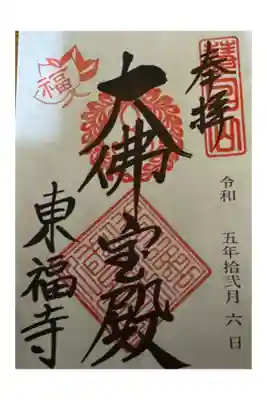 奉拝
令和 五年拾弐月 六日
大佛宝殿
東福寺
福